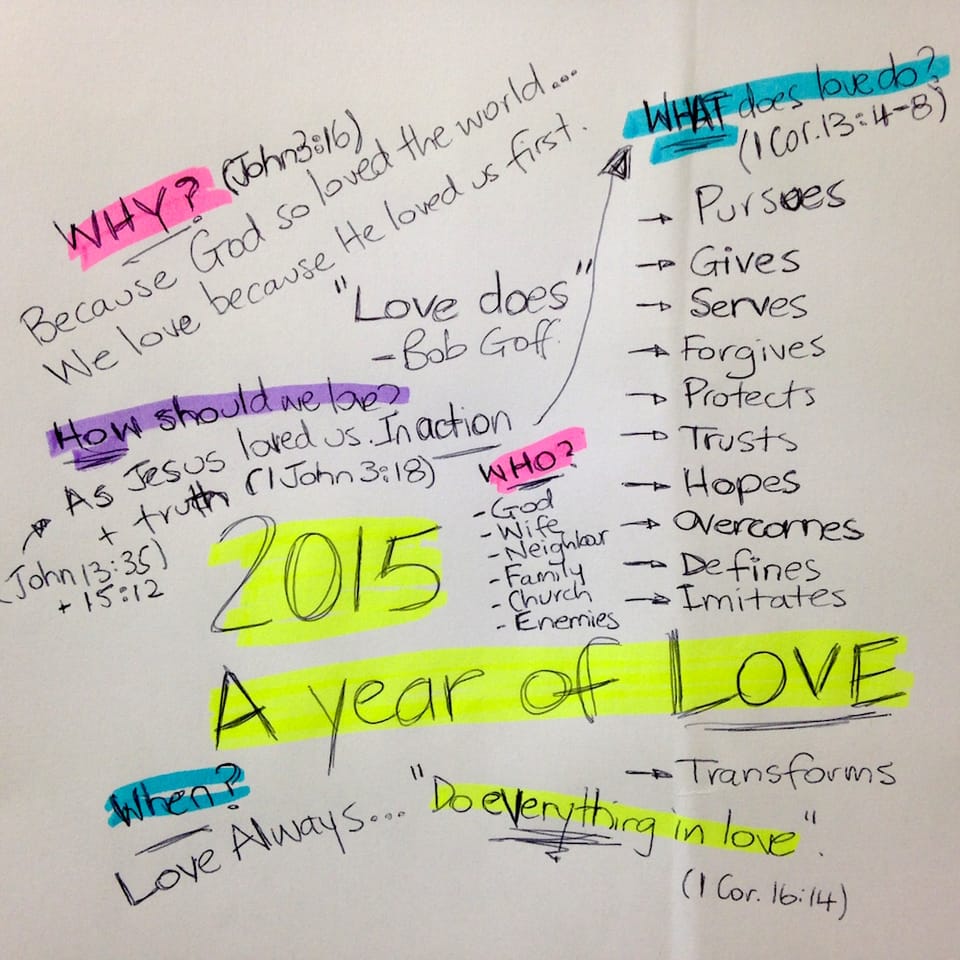 WHY? (John 3:16)
Because God so loved the world...
We love because He loved us first.
"Love does"
- Bob Goff
How should we love?
As Jesus loved us. In action
+ truth (1 John 3:18)
(John 13:35)
+ 15:12
WHO?
- God
- Wife
- Neighbour
- Family
- Church
- Enemies
WHAT does love do?
(1 Cor. 13:4-8)
→ Pursues
→ Gives
→ Serves
→ Forgives
→ Protects
→ Trusts
→ Hopes
→ Overcomes
→ Defines
→ Imitates
2015
A year of LOVE
→ Transforms
When?
Love Always... "Do everything in love".
(1 Cor. 16:14)